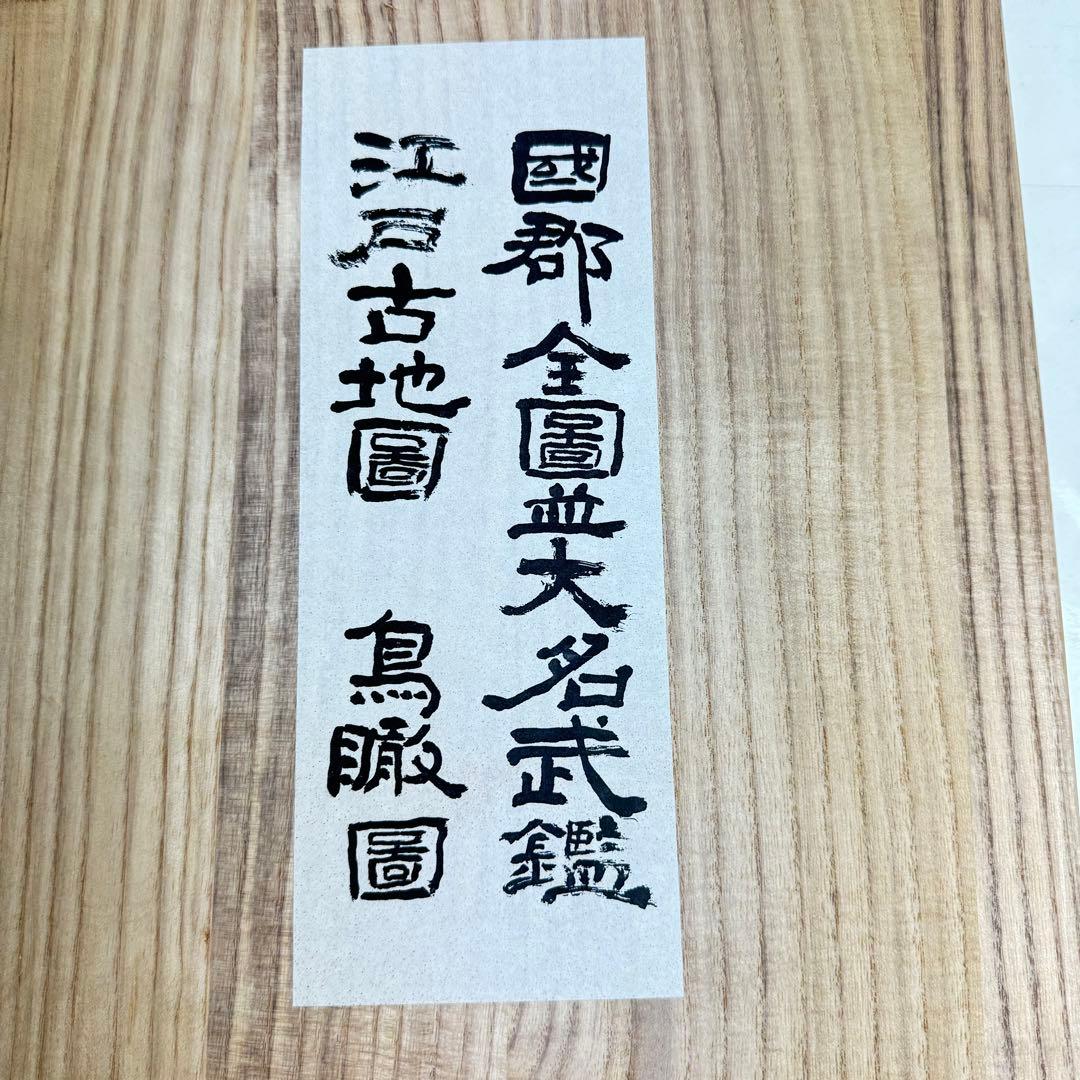 國郡全圖並大名武鑑
江戸古地圖 鳥瞰圖